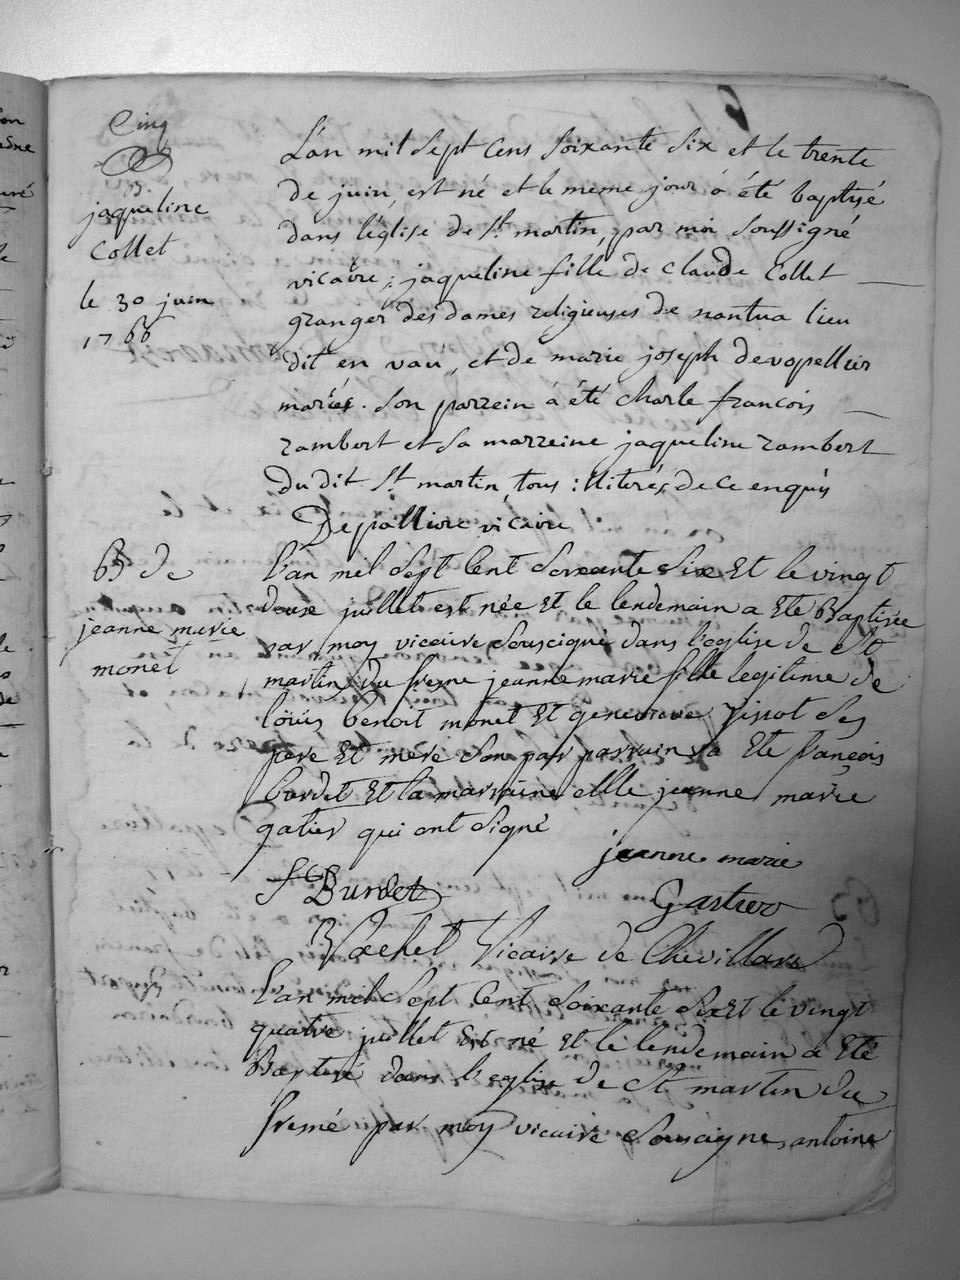 Cinq
B.
jaqueline
Collet
le 30 juin
1766
L'an mil sept cens soixante six et le trente
de juin, est né et le meme jour à été baptisé
dans l'église de St martin, par moi soussigné
vicaire, jaqueline fille de claude Collet
granger des dames religieuses de nantua lieu
dit en vau, et de marie joseph devopellier
mariés. son parrein à été charle francois
rambert et sa marreine jaqueline rambert
du dit St martin, tous illiterés de ce enquis
Depalliere vicaire
B de
jeanne marie
monet
L'an mil sept Cent soixante six Et le vingt
douse juillet est née Et le lendemain a Eté Baptisée
par moy vicaire souscigné dans l'eglise de St
martin du fresne jeanne marie fille legitime de
loüis benoit monet Et genevieve pissot ses
pere Et mere son par parrain a Eté françois
burdet Et la marraine elle jeanne marie
gatier qui ont signé
jeanne marie
f Burdet Gastier
Vicaire de Chevillard
L'an mil sept Cent soixante six Et le vingt
quatre juillet Est né Et le lendemain a Eté
Baptisé dans l'eglise de St martin du
frené par moy vicaire souscigne antoine